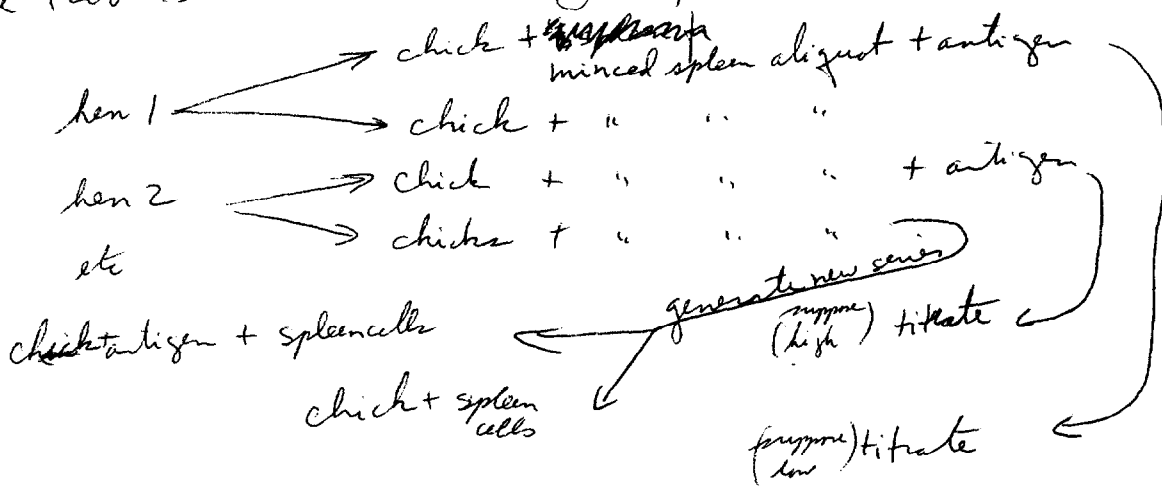 chick +
minced spleen aliquot + antigen
hen 1
chick + " " "
hen 2
chick + " " " + antigen
chicks + " " "
etc
generate new series
chick + antigen + spleen cells
(suppose high) titrate
chick + spleen cells
(suppose low) titrate